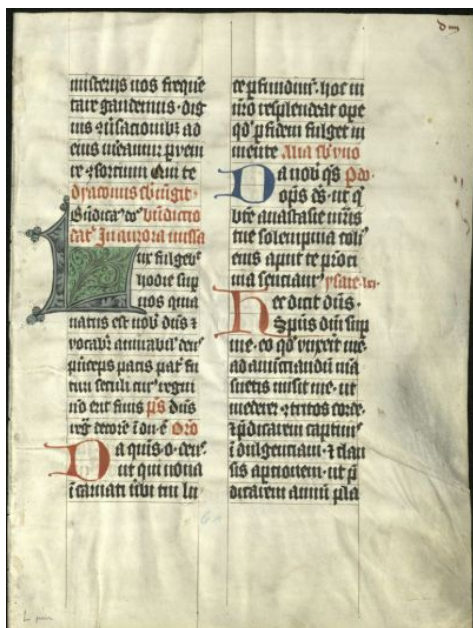 misteriis nos frequē
tare gaudemus · dig
nis ꝯūsacionibꝫ ad
eius mereamur perveni
re ꝯsorcium Qui te
dyaconus sbiūgit ·
Bn̄dica' do' bn̄dicto
dat' In aurora missa
Lux fulgeb'
hodie sup
nos quia
natus est nob' dn̄s ⁊
vocab' amirabil' deu'
p̄nceps pacis pat' fu
turi seculi cui' regni
nō erit finis ps̄ dūs
reḡ decorē ī du ē Oro
Da quis o · deus
ut qui noua
īcarnati ūbi tui lu
ce pfundim' · hoc in
nr̄o resplendeat ope
qd' p fidem fulget in
mente Alia sb vno
Da nob' qs
op̄s ds · ut q
bte anastasie mr̄is
tue solempnia coli
eius aput te proci
nia senciam' ysaie · lci ·
Hec dicit dn̄s ·
Spūs dn̄i sup
me · eo qd' vnxerit me ·
ad anūcciandū mā
suetis misit me · ut
mederer ꝯtritos corde ·
⁊ p̄dicarem captiui'
īdulgenciam · ⁊ clau
sis apcionem · ut p̄
dicarem annū pla